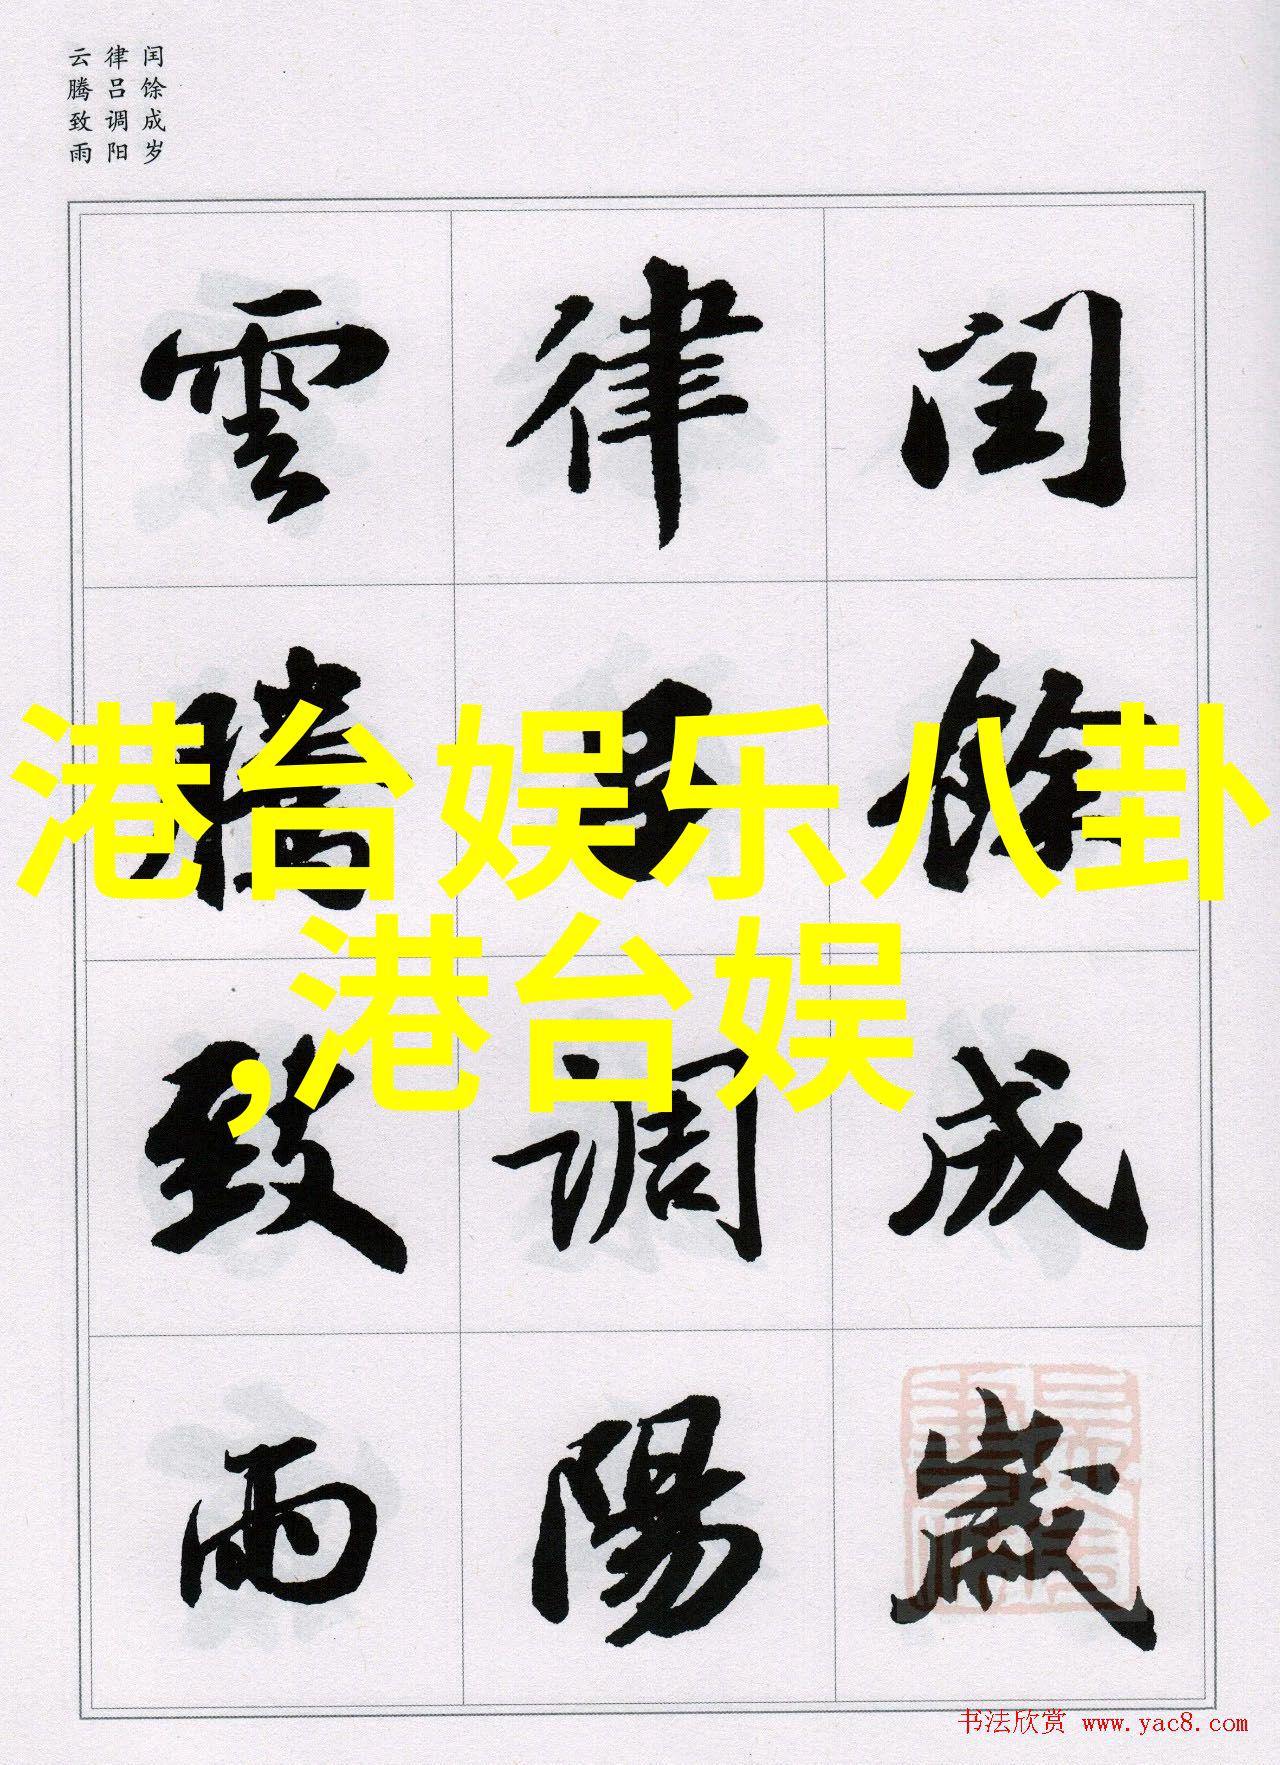 闰馀成岁
律吕调阳
云腾致雨
閏餘成歲
律吕調陽
雲騰致雨
港台娱乐八卦
,港台娱
书法欣赏 www.yac8.com